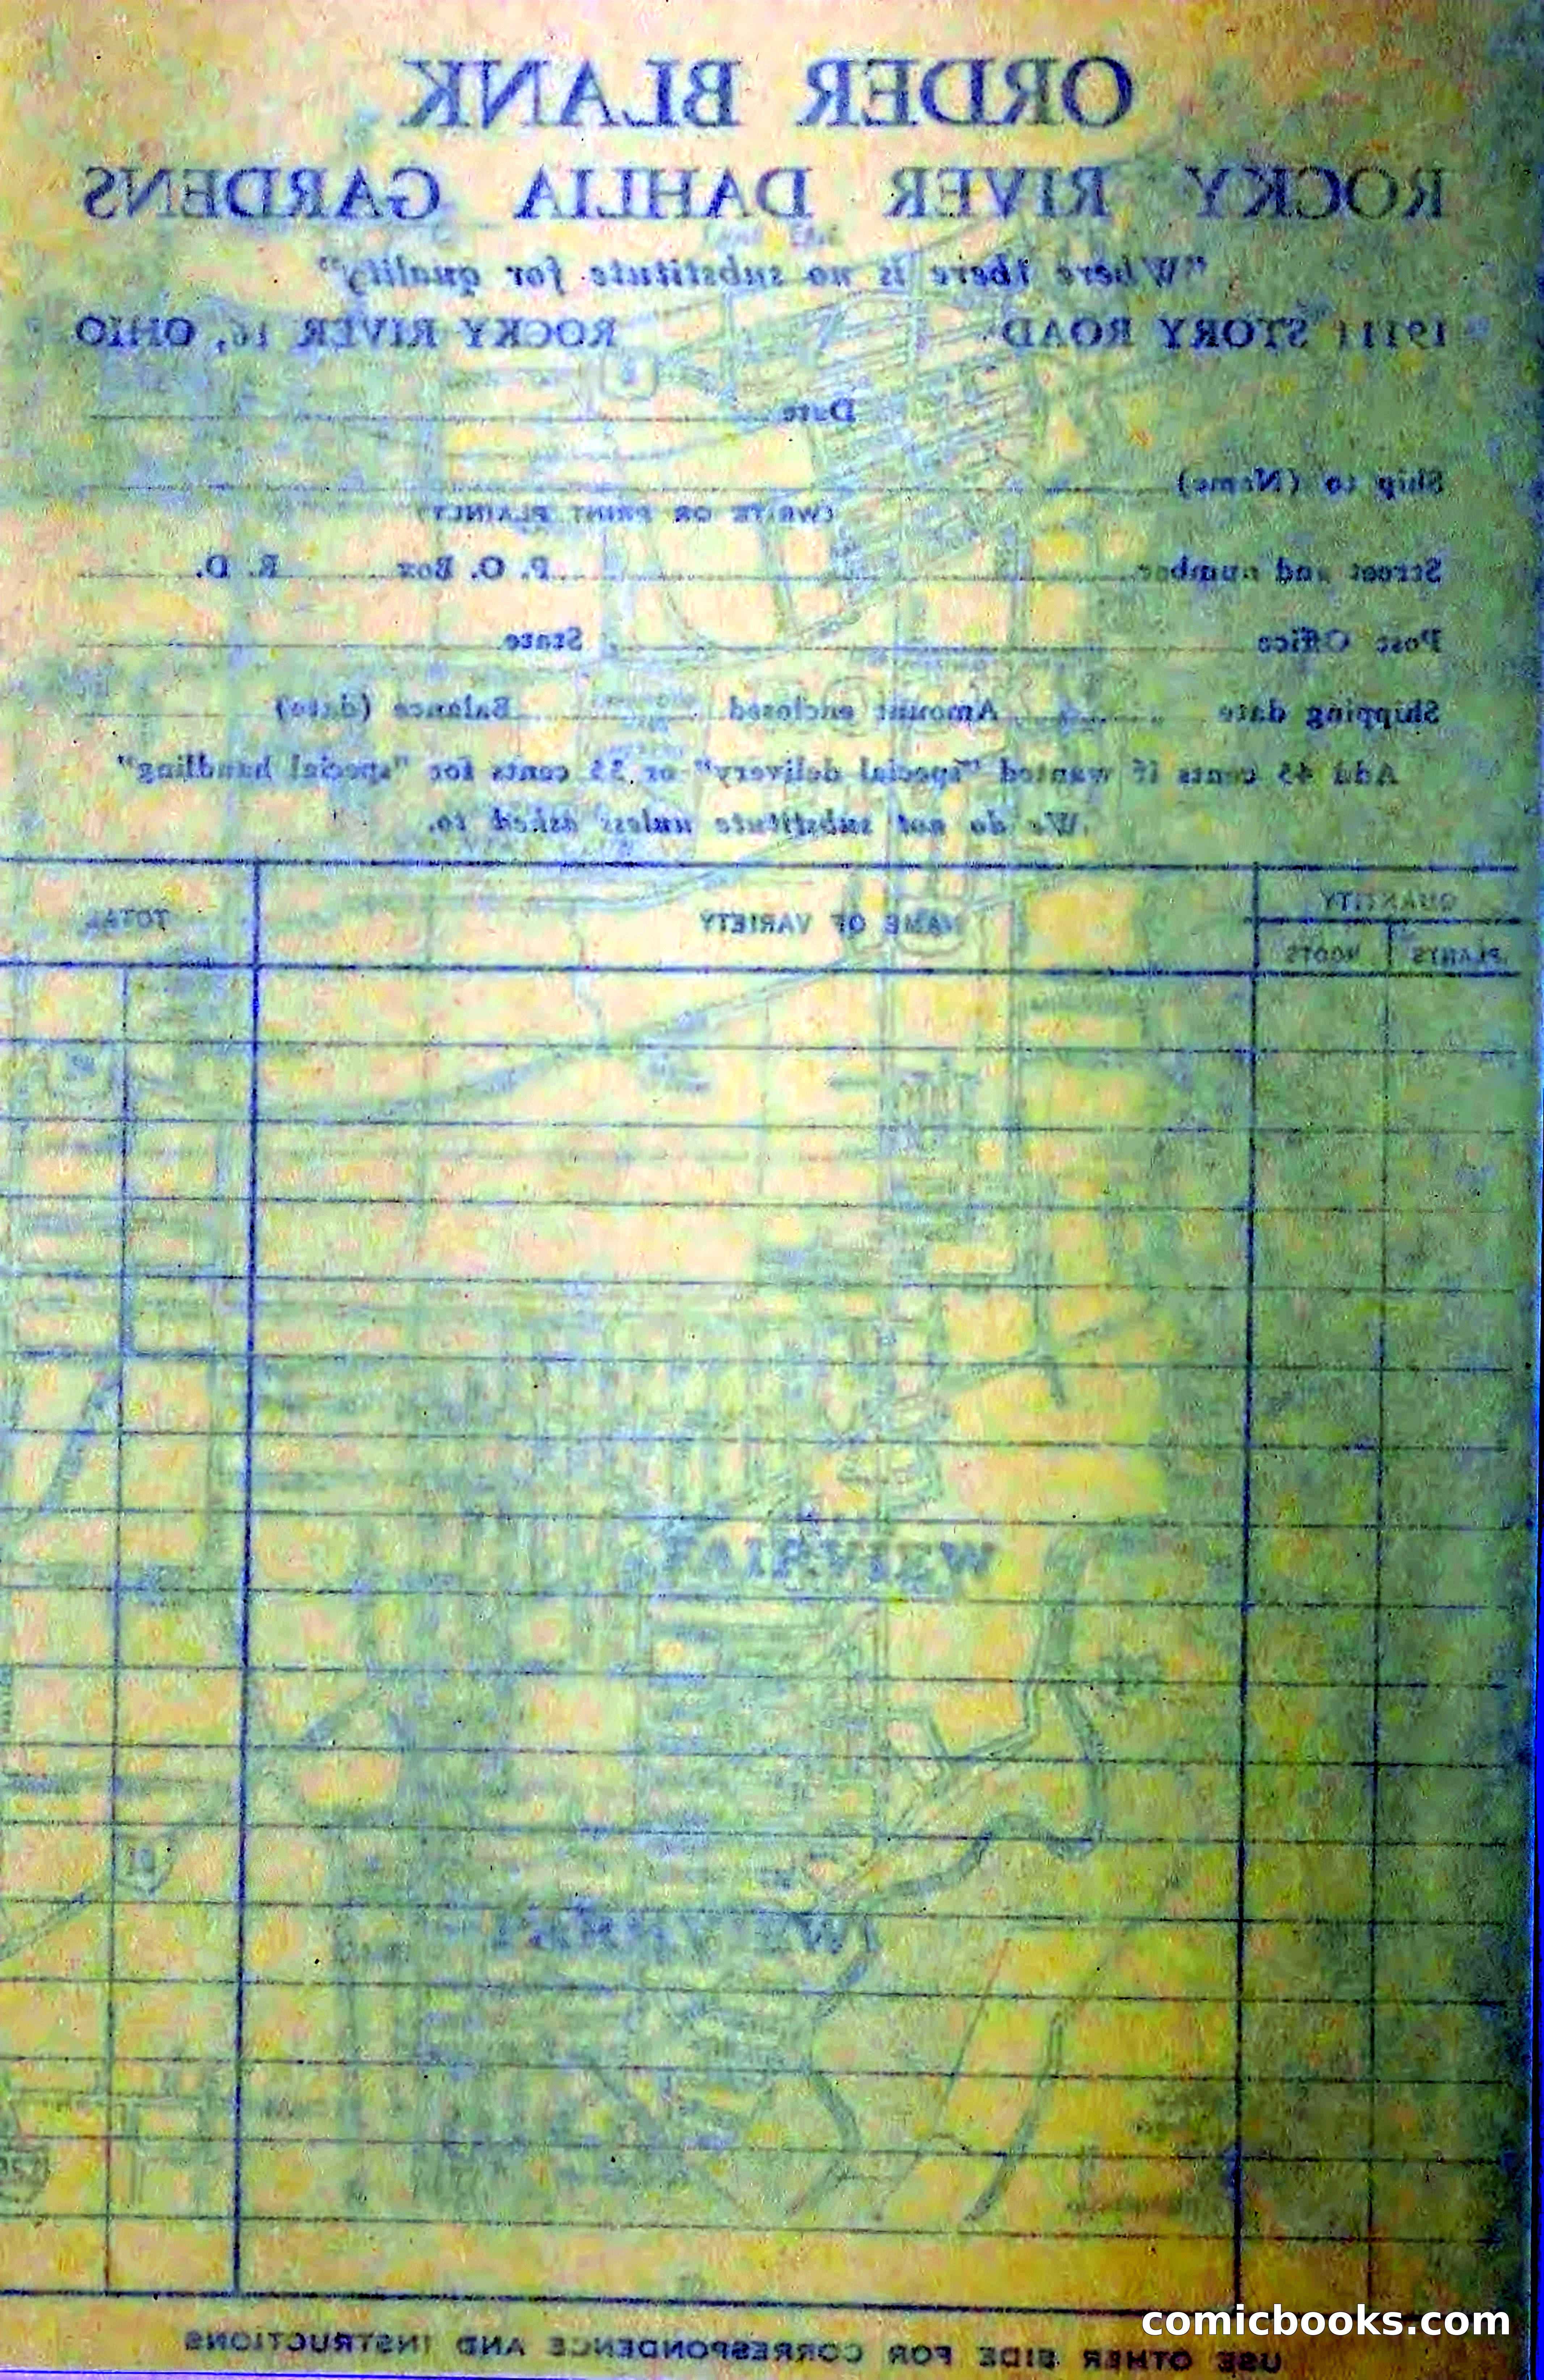 ORDER BLANK
ROCKY RIVER DAHLIA GARDENS
"Where there is no substitute for quality"
19111 STORY ROAD ROCKY RIVER 16, OHIO
Date
Ship to (Name)
(WRITE OR PRINT PLAINLY)
Street and number P. O. Box R. D.
Post Office State
Shipping date Amount enclosed Balance (date)
Add 45 cents if wanted "special delivery" or 35 cents for "special handling"
We do not substitute unless asked to.
QUANTITY NAME OF VARIETY TOTAL
PLANTS ROOTS
FAIRVIEW
USE OTHER SIDE FOR CORRESPONDENCE AND INSTRUCTIONS
comicbooks.com